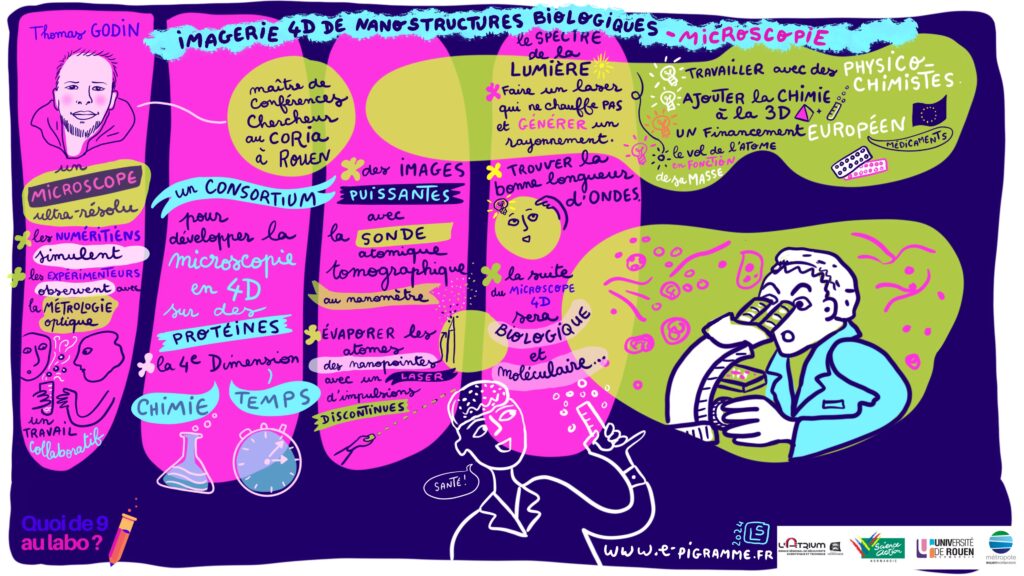 Thomas GODIN
IMAGERIE 4D DE NANOSTRUCTURES BIOLOGIQUES - MICROSCOPIE
maître de
Conférences
Chercheur
au CORIA
à Rouen
un
MICROSCOPE
ultra-résolu
les NUMÉRITIENS
simulent
les EXPÉRIMENTEURS
observent avec
la MÉTROLOGIE
optique
un
TRAVAIL
collaboratif
un CONSORTIUM
pour
développer la
microscopie
en 4D
sur des
PROTÉINES
la 4e Dimension
CHIMIE
TEMPS
des IMAGES
PUISSANTES
avec
la SONDE
atomique
tomographique
au nanomètre
ÉVAPORER les
atomes
des nanopointes
avec un LASER
d'impulsions
DISCONTINUES
le SPECTRE
de la
LUMIÈRE
Faire un laser
qui ne chauffe PAS
et GÉNÉRER un
rayonnement.
TROUVER la
bonne longueur
d'ONDES.
la suite
du MICROSCOPE
4D
sera
BIOLOGIQUE
et
moléculaire...
TRAVAILLER avec des PHYSICO-
CHIMISTES.
AJOUTER la CHIMIE
à la 3D
un Financement EUROPÉEN
le vol de l'ATOME
en FONCTION
de sa MASSE
MÉDICAMENTS
SANTÉ!
Quoi de 9
au labo ?
2024
LS
www.e-pigramme.fr
L'ATRIUM
Science Action
NORMANDIE
UNIVERSITÉ
DE ROUEN
NORMANDIE
métropole
ROUENNORMANDIE